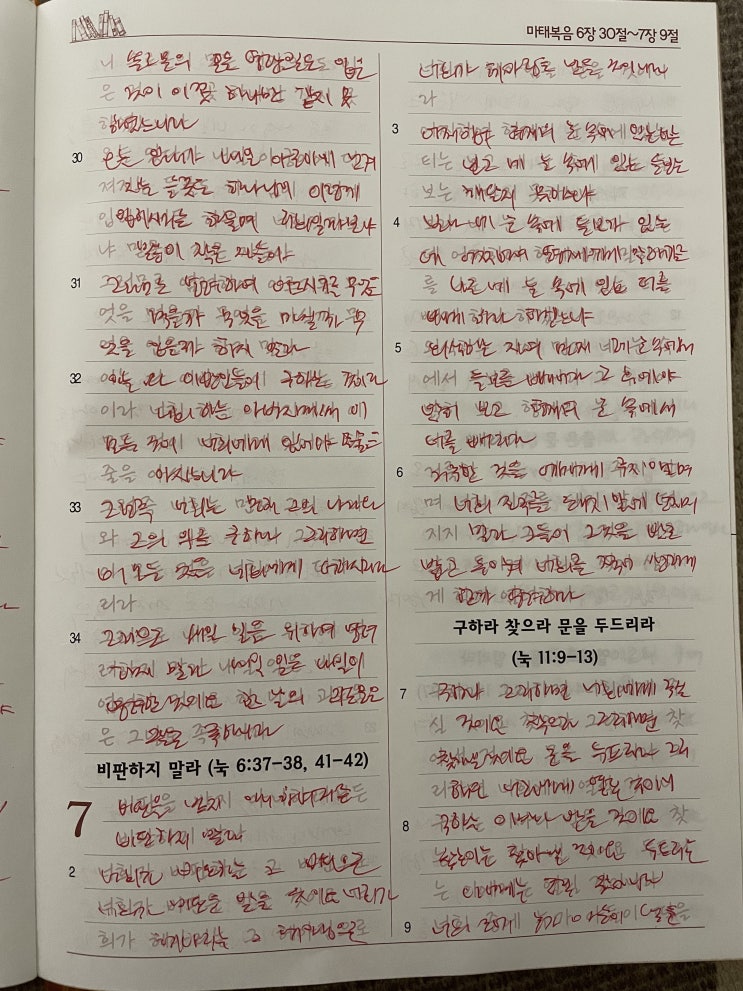 마태복음 6장 30절~7장 9절
니 솔로몬의 모든 영광으로도 입은
은 것이 이 꽃 하나만 같지 못
하였느니라
30 오늘 있다가 내일 아궁이에 던져
져지는 들꽃도 하나님께 이렇게
입히시거든 하물며 너희일까보냐
냐 믿음이 작은 자들아
31 그러므로 염려하여 이르기를 무엇
엇을 먹을까 무엇을 마실까 무
엇을 입을까 하지 말라
32 이는 다 이방인들이 구하는 것이라
이라 너희 하늘 아버지께서 이
모든 것이 너희에게 있어야 할 줄
줄을 아시느니라
33 그런즉 너희는 먼저 그의 나라
와 그의 의를 구하라 그리하면
이 모든 것을 너희에게 더하시리라
리라
34 그러므로 내일 일을 위하여 염려
려하지 말라 내일 일은 내일이
염려할 것이요 한 날의 괴로움은
은 그날로 족하니라
비판하지 말라 (눅 6:37-38, 41-42)
7 비판을 받지
비판하지 말라
2 너희가 비판하는 그 비판으로
너희가 비판을 받을 것이요 너희가
희가 헤아리는 그 헤아림으로
너희가 헤아림을 받을 것이니라
라
3 어찌하여 형제의 눈 속에 있는
티는 보고 네 눈 속에 있는 들보는
보는 깨닫지 못하느냐
4 보라 네 눈 속에 들보가 있는
데 어찌하여 형제에게 말하기를
를 나로 네 눈 속에 있는 티를
빼게 하라 하겠느냐
5 외식하는 자여 먼저 네 눈 속에서
에서 들보를 빼어라 그 후에야
밝히 보고 형제의 눈 속에서
티를 빼리라
6 거룩한 것을 개에게 주지 말며
며 너희 진주를 돼지 앞에 던지
지지 말라 그들이 그것을 발로
밟고 돌이켜 너희를 찢어 상하게
게 할까 염려하라
구하라 찾으라 문을 두드리라
(눅 11:9-13)
7 구하라 그리하면 너희에게 주실
실 것이요 찾으라 그리하면 찾
아낼 것이요 문을 두드리라 그리
리하면 너희에게 열릴 것이니
8 구하는 이마다 받을 것이요 찾
는 이는 찾아낼 것이요 두드리는
는 이에게는 열릴 것이니라
9 너희 중에 누가 아들이